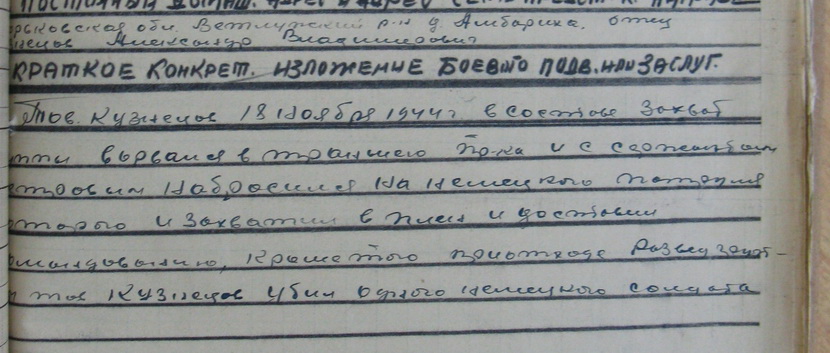 ПОСТОЯННЫЙ ДОМАШ. АДРЕС И АДРЕС
рьковская обл. Ветлужский р-н д. Анбариха. отец
нецов Александр Владимирович
КРАТКОЕ КОНКРЕТ. ИЗЛОЖЕНИЕ БОЕВОГО ПОДВ. ИЛИ ЗАСЛУГ.
Тов. Кузнецов 18 Ноября 1944 г в составе захват
ппы ворвался в траншею пр-ка и с сержантом
набросился на немецкого
оторого и захватил в плен и доставил
омандованию, кроме того при отходе развед
тов Кузнецов убил одного немецкого солдата